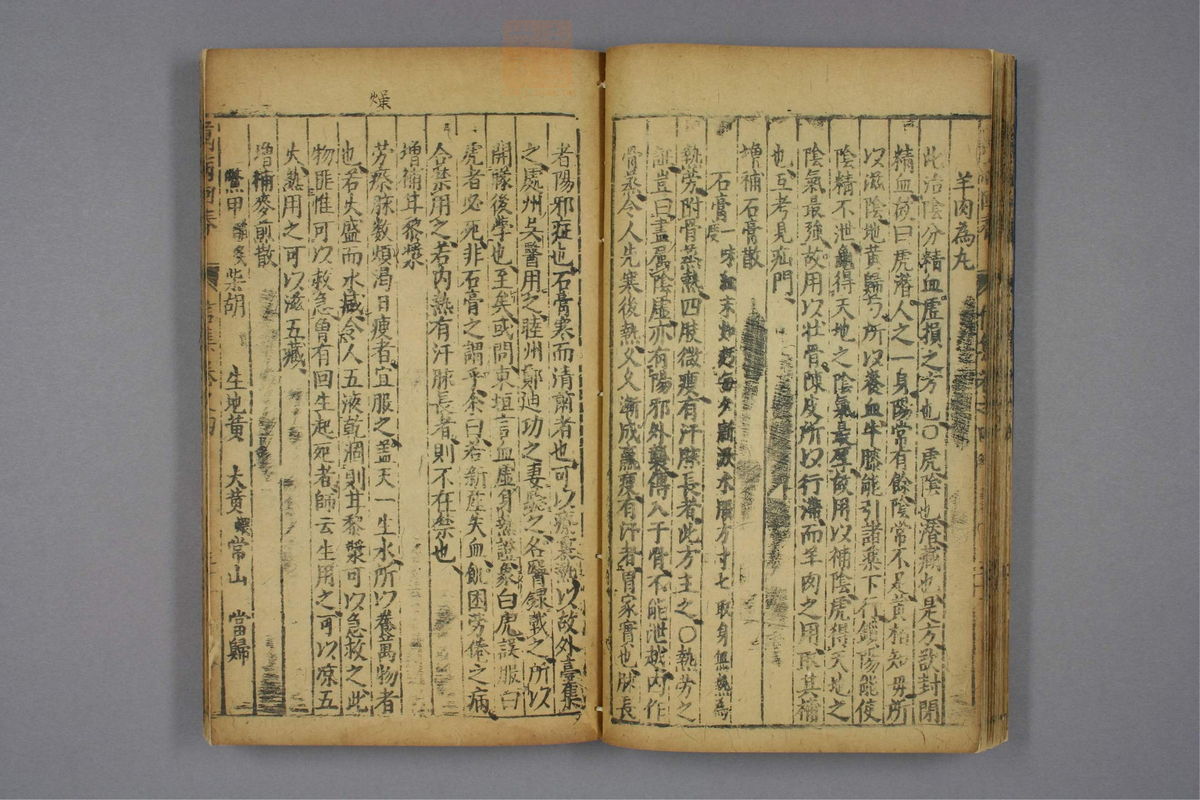 羊肉為丸
此治陰分精血虛損之方也○虎陰也潛藏也是方欲封閉
精血故曰虎潛人之一身陽常有餘陰常不足黃柏知母所
以滋陰地黃歸芍所以養血牛膝能引諸藥下行鎖陽能使
陰精不泄龜得天地之陰氣最厚故用以補陰虎得天地之
陰氣最強故用以壯骨陳皮所以行滯而羊肉之用取其補
也互考見疝門
增補石膏散
石膏一味細末如麵每夕新汲水服方寸匕取身無熱為度
熱勞附骨蒸熱四肢微瘦有汗脉長者此方主之○熱勞之
証豈曰盡屬陰虛亦有陽邪外襲傳入于骨不能泄越內作
骨蒸令人先寒後熱久久漸成羸瘦有汗者胃家實也脉長
者陽邪症也石膏寒而清肅者也可以療蒸熱以故外臺集
之處州吳醫用之睦州鄭迪功之妻驗之名醫錄載之所以
開矇後學也至矣或問東垣言血虛身熱證象白虎誤服白
虎者必死非石膏之謂乎余曰若新產失血飢困勞倦之病
合禁用之若內熱有汗脉長者則不在禁也
增補耳黎漿
勞瘵脉數煩渴日瘦者宜服之蓋天一生水所以養萬物者
也若火盛而水臧令人五液乾涸則耳黎漿可以急救之此
物匪惟可以救急曾有回生起死者師云生用之可以凉五
火熟用之可以滋五臟
增補麥煎散
鱉甲 柴胡 生地黃 大黃 常山 當歸
燥